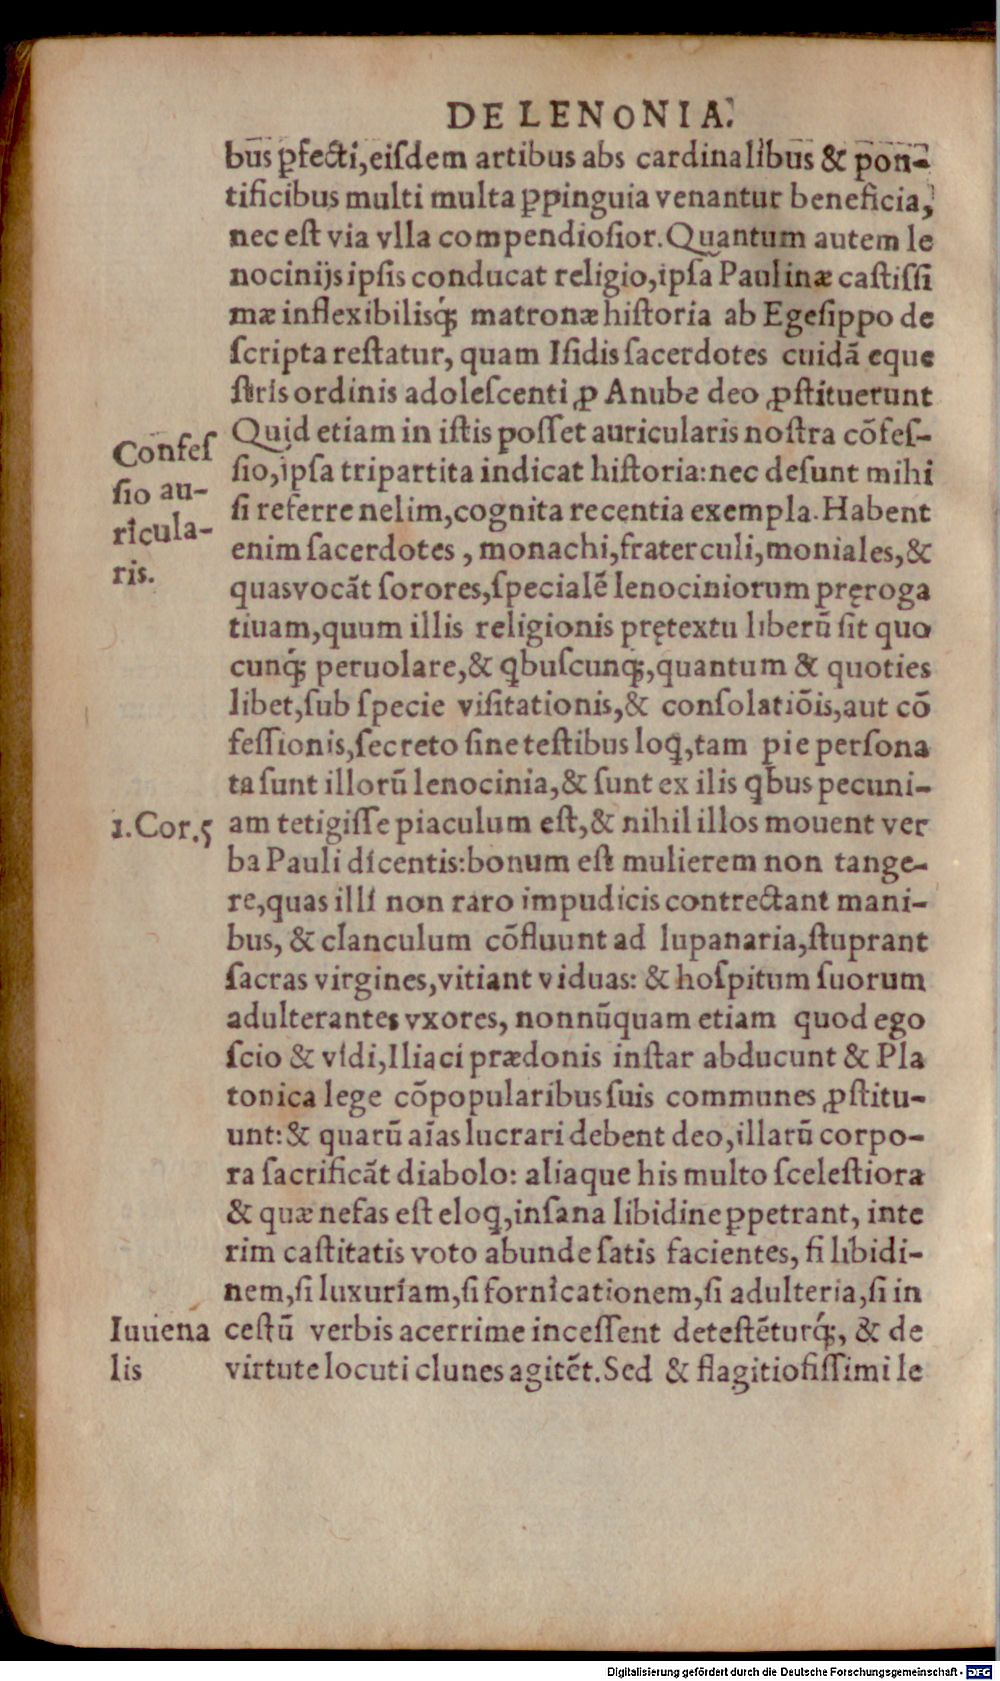 DE LENONIA.
bus ꝑfecti,eiſdem artibus abs cardinalibus & pon-
tificibus multi multa ꝑpinguia venantur beneficia,
nec eſt via vlla compendioſior. Quantum autem le
nocinijs ipſis conducat religio,ipſa Paulinæ caſtiſſi
mæ inflexibilisq́ꝫ matronæ hiſtoria ab Egeſippo de
ſcripta reſtatur, quam Iſidis ſacerdotes cuidã eque
ſtris ordinis adoleſcenti ꝓ Anube deo ꝓſtituerunt
Quid etiam in iſtis poſſet auricularis noſtra cõfeſ-
ſio,ipſa tripartita indicat hiſtoria:nec deſunt mihi
ſi referre nelim,cognita recentia exempla. Habent
enim ſacerdotes , monachi,fraterculi,moniales,&
quas vocãt ſorores,ſpecialẽ lenociniorum pręroga
tiuam,quum illis religionis prętextu liberũ ſit quo
cunq́ꝫ peruolare,& qͥbuſcunqꝫ,quantum & quoties
libet,ſub ſpecie viſitationis,& conſolatiõis,aut cõ
feſſionis,ſecreto ſine teſtibus loqͥ,tam pie perſona
ta ſunt illorũ lenocinia,& ſunt ex ilis qͥbus pecuni-
am tetigiſſe piaculum eſt,& nihil illos mouent ver
ba Pauli dicentis:bonum eſt mulierem non tange-
re,quas illi non raro impudicis contrectant mani-
bus, & clanculum cõfluunt ad lupanaria,ſtuprant
ſacras virgines,vitiant viduas: & hoſpitum ſuorum
adulterantes vxores, nonnũquam etiam quod ego
ſcio & vidi,Iliaci prædonis inſtar abducunt & Pla
tonica lege cõpopularibus ſuis communes ꝓſtitu-
unt:& quarũ aĩas lucrari debent deo,illarũ corpo-
ra ſacrificãt diabolo: aliaque his multo ſceleſtiora
& quæ nefas eſt eloqͥ,inſana libidine ꝑpetrant, inte
rim caſtitatis voto abunde ſatis facientes, ſi libidi-
nem,ſi luxuriam,ſi fornicationem,ſi adulteria,ſi in
ceſtũ verbis acerrime inceſſent deteſtẽturq́ꝫ, & de
virtute locuti clunes agitẽt. Sed & flagitioſiſſimi le
Confeſ
ſio au-
ricula-
ris.
1.Cor.5
Iuuena
lis
Digitalisierung gefördert durch die Deutsche Forschungsgemeinschaft - DFG